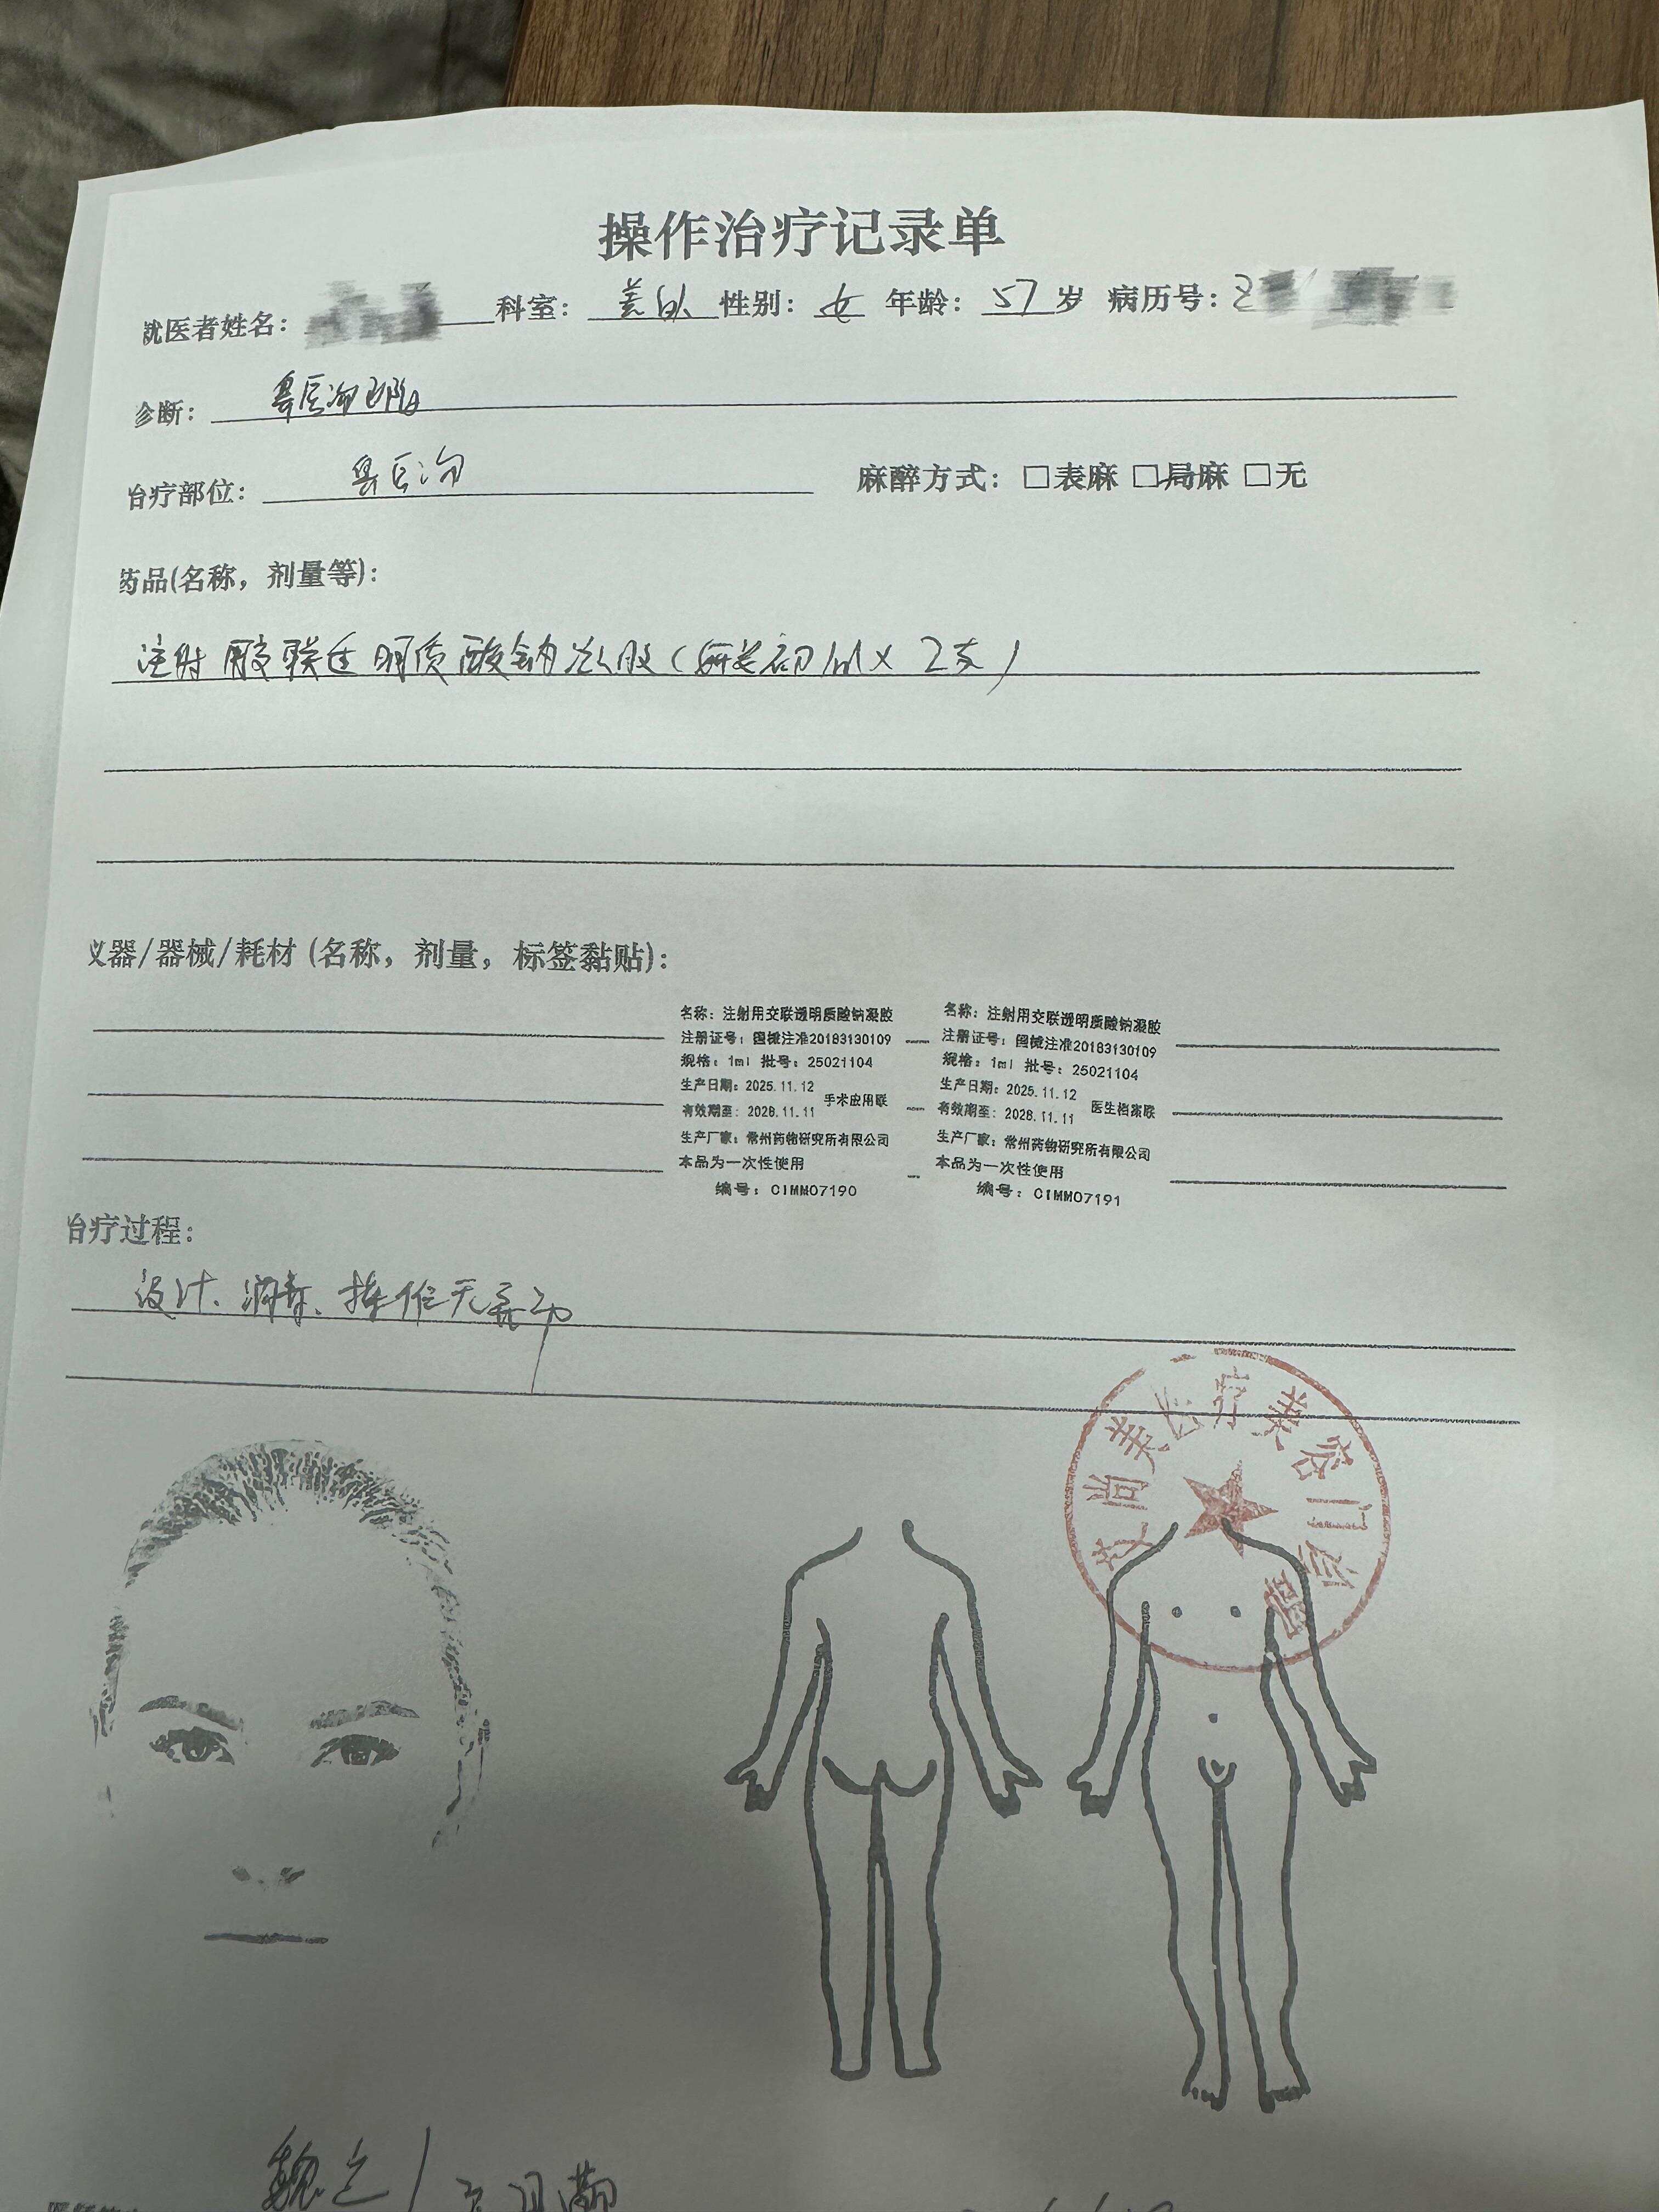 操作治疗记录单
就医者姓名: 科室: 美外 性别: 女 年龄: 57 岁 病历号:
诊断: 鼻唇沟凹陷
治疗部位: 鼻唇沟 麻醉方式: □表麻 □局麻 □无
药品(名称，剂量等):
注射 交联透明质酸钠凝胶( 初 1ml X 2支)
仪器/器械/耗材 (名称，剂量，标签黏贴):
名称: 注射用交联透明质酸钠凝胶
注册证号: 国械注准20183130109
规格: 1ml 批号: 25021104
生产日期: 2025.11.12
手术应用联
有效期至: 2028.11.11
生产厂家: 常州药物研究所有限公司
本品为一次性使用
编号: CIMM07190
名称: 注射用交联透明质酸钠凝胶
注册证号: 国械注准20183130109
规格: 1ml 批号: 25021104
生产日期: 2025.11.12
医生档案联
有效期至: 2028.11.11
生产厂家: 常州药物研究所有限公司
本品为一次性使用
编号: CIMM07191
治疗过程:
设计、消毒、操作无菌
艾尚美医疗美容门诊部